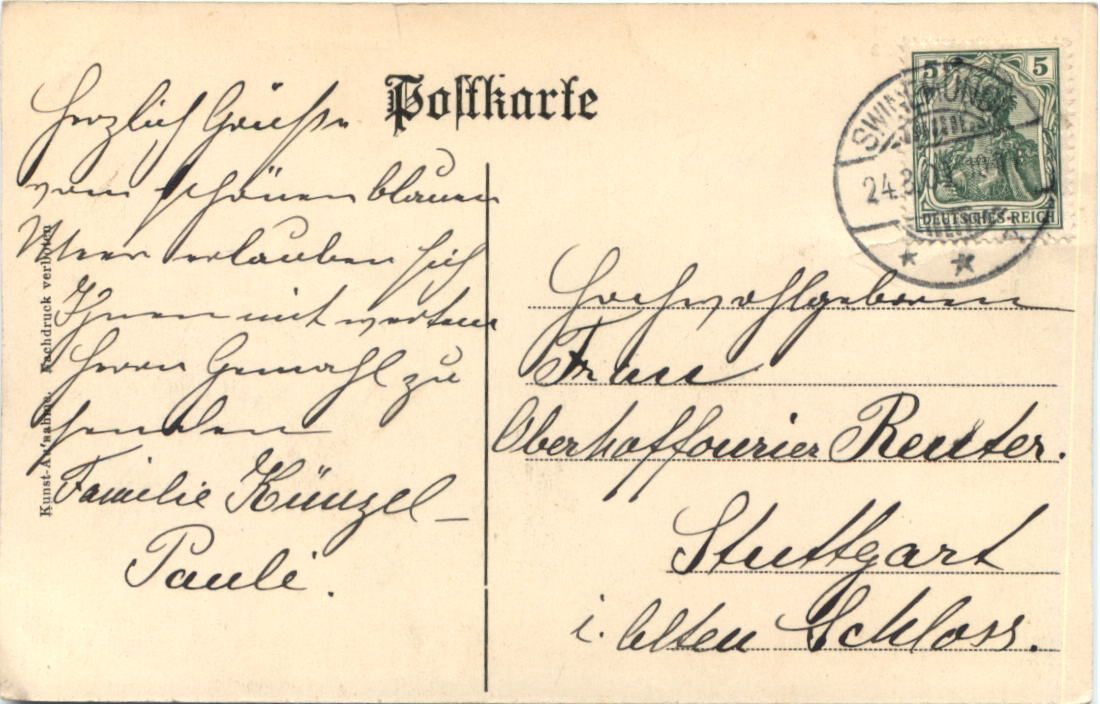 Postkarte
Herzlich Grüsse
vom schönen blauen
Meer erlauben sich
Ihnen mit wertem
Herrn Gemahl zu
senden
Familie Künzel-
Pauli.
Kunst-Aufnahme. Nachdruck verboten
5 5
DEUTSCHES REICH
SWINEMÜNDE
24.8.
Hochwohlgeboren
Frau
Oberhoffourier Reuter.
Stuttgart
i. Alten Schloss.